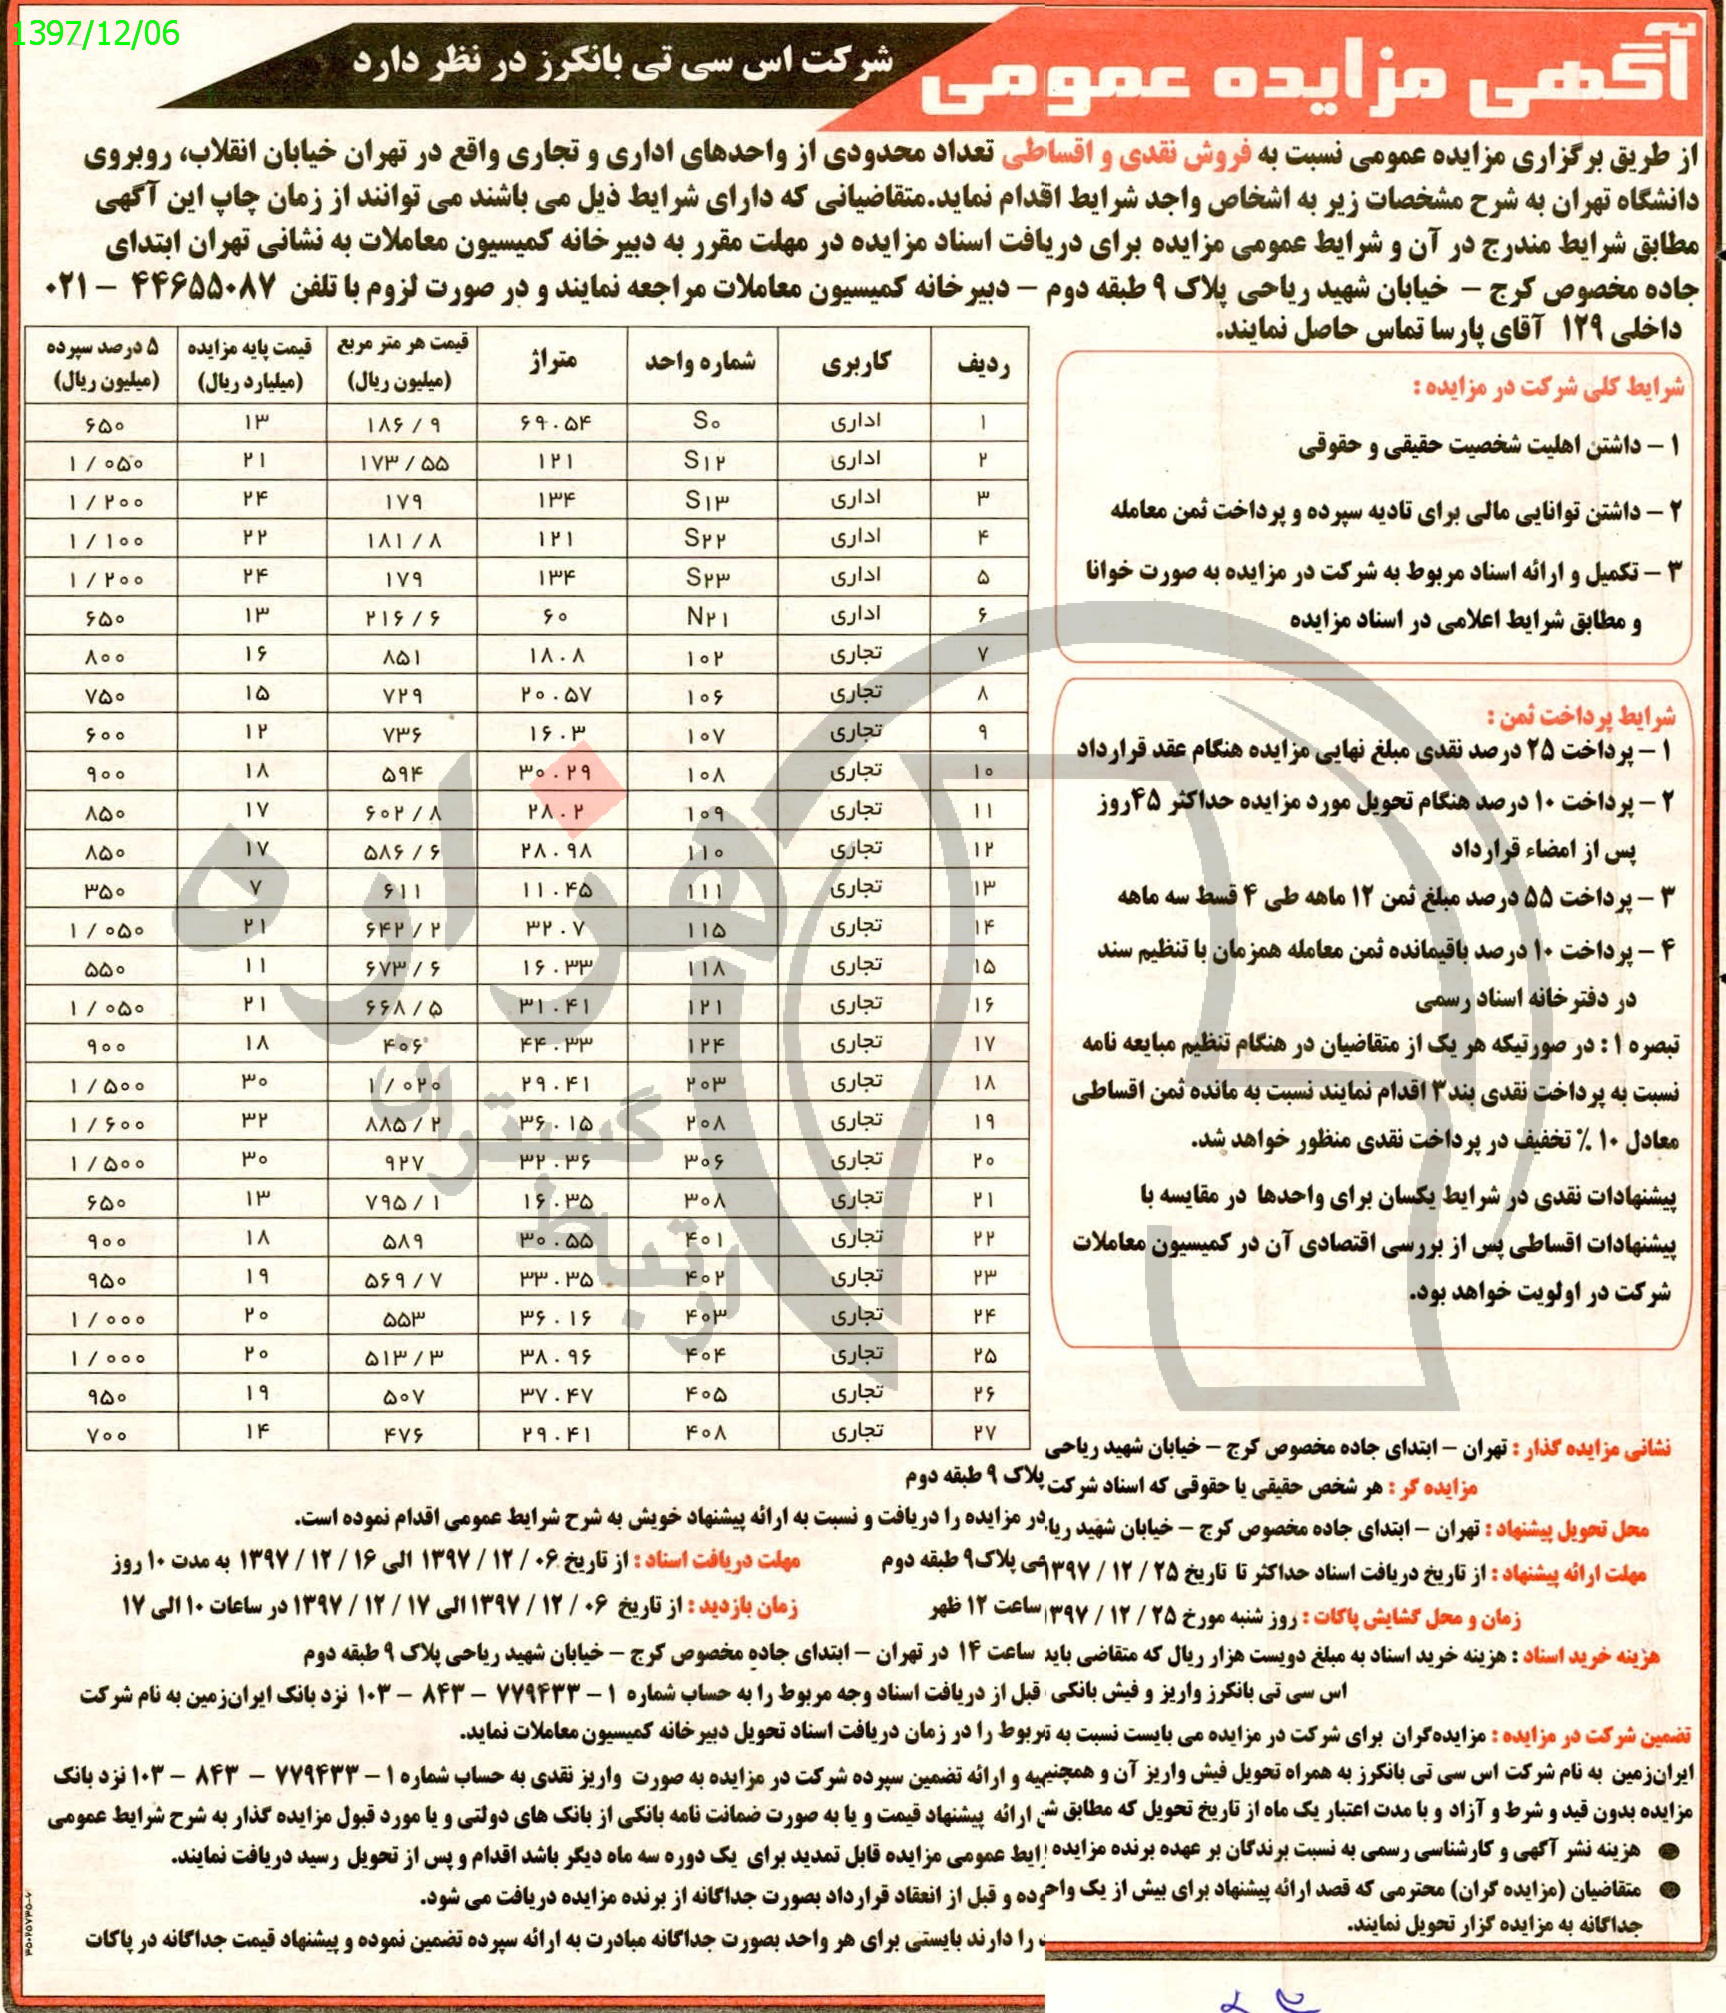 1397/12/06
آگهی مزایده عمومی
شرکت اس سی تی بانکرز در نظر دارد
از طریق برگزاری مزایده عمومی نسبت به فروش نقدی و اقساطی تعداد محدودی از واحدهای اداری و تجاری واقع در تهران خیابان انقلاب، روبروی
دانشگاه تهران به شرح مشخصات زیر به اشخاص واجد شرایط اقدام نماید.متقاضیانی که دارای شرایط ذیل می باشند می توانند از زمان چاپ این آگهی
مطابق شرایط مندرج در آن و شرایط عمومی مزایده برای دریافت اسناد مزایده در مهلت مقرر به دبیرخانه کمیسیون معاملات به نشانی تهران ابتدای
جاده مخصوص کرج – خیابان شهید ریاحی پلاک ۹ طبقه دوم – دبیرخانه کمیسیون معاملات مراجعه نمایند و در صورت لزوم با تلفن ۴۴۶۵۵۰۸۷ – ۰۲۱
داخلی ۱۲۹ آقای پارسا تماس حاصل نمایند.
شرایط کلی شرکت در مزایده :
۱ – داشتن اهلیت شخصیت حقیقی و حقوقی
۲ – داشتن توانایی مالی برای تادیه سپرده و پرداخت ثمن معامله
۳ – تکمیل و ارائه اسناد مربوط به شرکت در مزایده به صورت خوانا
و مطابق شرایط اعلامی در اسناد مزایده
شرایط پرداخت ثمن :
۱ – پرداخت ۲۵ درصد نقدی مبلغ نهایی مزایده هنگام عقد قرارداد
۲ – پرداخت ۱۰ درصد هنگام تحویل مورد مزایده حداکثر ۴۵روز
پس از امضاء قرارداد
۳ – پرداخت ۵۵ درصد مبلغ ثمن ۱۲ ماهه طی ۴ قسط سه ماهه
۴ – پرداخت ۱۰ درصد باقیمانده ثمن معامله همزمان با تنظیم سند
در دفترخانه اسناد رسمی
تبصره ۱ : در صورتیکه هر یک از متقاضیان در هنگام تنظیم مبایعه نامه
نسبت به پرداخت نقدی بند۳ اقدام نمایند نسبت به مانده ثمن اقساطی
معادل ۱۰ ٪ تخفیف در پرداخت نقدی منظور خواهد شد.
پیشنهادات نقدی در شرایط یکسان برای واحدها در مقایسه با
پیشنهادات اقساطی پس از بررسی اقتصادی آن در کمیسیون معاملات
شرکت در اولویت خواهد بود.
ردیف کاربری شماره واحد متراژ قیمت هر متر مربع (میلیون ریال) قیمت پایه مزایده (میلیارد ریال) ۵ درصد سپرده (میلیون ریال)
۱ اداری S۰ ۶۹.۵۴ ۱۸۶/۹ ۱۳ ۶۵۰
۲ اداری S۱۲ ۱۲۱ ۱۷۳/۵۵ ۲۱ ۱/۰۵۰
۳ اداری S۱۳ ۱۳۴ ۱۷۹ ۲۴ ۱/۲۰۰
۴ اداری S۲۲ ۱۲۱ ۱۸۱/۸ ۲۲ ۱/۱۰۰
۵ اداری S۲۳ ۱۳۴ ۱۷۹ ۲۴ ۱/۲۰۰
۶ اداری N۲۱ ۶۰ ۲۱۶/۶ ۱۳ ۶۵۰
۷ تجاری ۱۰۲ ۱۸.۸ ۸۵۱ ۱۶ ۸۰۰
۸ تجاری ۱۰۶ ۲۰.۵۷ ۷۲۹ ۱۵ ۷۵۰
۹ تجاری ۱۰۷ ۱۶.۳ ۷۳۶ ۱۲ ۶۰۰
۱۰ تجاری ۱۰۸ ۳۰.۲۹ ۵۹۴ ۱۸ ۹۰۰
۱۱ تجاری ۱۰۹ ۲۸.۲ ۶۰۲/۸ ۱۷ ۸۵۰
۱۲ تجاری ۱۱۰ ۲۸.۹۸ ۵۸۶/۶ ۱۷ ۸۵۰
۱۳ تجاری ۱۱۱ ۱۱.۴۵ ۶۱۱ ۷ ۳۵۰
۱۴ تجاری ۱۱۵ ۳۲.۷ ۶۴۲/۲ ۲۱ ۱/۰۵۰
۱۵ تجاری ۱۱۸ ۱۶.۳۳ ۶۷۳/۶ ۱۱ ۵۵۰
۱۶ تجاری ۱۲۱ ۳۱.۴۱ ۶۶۸/۵ ۲۱ ۱/۰۵۰
۱۷ تجاری ۱۲۴ ۴۴.۳۳ ۴۰۶ ۱۸ ۹۰۰
۱۸ تجاری ۲۰۳ ۲۹.۴۱ ۱/۰۲۰ ۳۰ ۱/۵۰۰
۱۹ تجاری ۲۰۸ ۳۶.۱۵ ۸۸۵/۲ ۳۲ ۱/۶۰۰
۲۰ تجاری ۳۰۶ ۳۲.۳۶ ۹۲۷ ۳۰ ۱/۵۰۰
۲۱ تجاری ۳۰۸ ۱۶.۳۵ ۷۹۵/۱ ۱۳ ۶۵۰
۲۲ تجاری ۴۰۱ ۳۰.۵۵ ۵۸۹ ۱۸ ۹۰۰
۲۳ تجاری ۴۰۲ ۳۳.۳۵ ۵۶۹/۷ ۱۹ ۹۵۰
۲۴ تجاری ۴۰۳ ۳۶.۱۶ ۵۵۳ ۲۰ ۱/۰۰۰
۲۵ تجاری ۴۰۴ ۳۸.۹۶ ۵۱۳/۳ ۲۰ ۱/۰۰۰
۲۶ تجاری ۴۰۵ ۳۷.۴۷ ۵۰۷ ۱۹ ۹۵۰
۲۷ تجاری ۴۰۸ ۲۹.۴۱ ۴۷۶ ۱۴ ۷۰۰
هزاره
گستران
ارتباط
نشانی مزایده گذار : تهران – ابتدای جاده مخصوص کرج – خیابان شهید ریاحی پلاک ۹ طبقه دوم
مزایده گر : هر شخص حقیقی یا حقوقی که اسناد شرکت در مزایده را دریافت و نسبت به ارائه پیشنهاد خویش به شرح شرایط عمومی اقدام نموده است.
محل تحویل پیشنهاد : تهران – ابتدای جاده مخصوص کرج – خیابان شهید ریاحی پلاک۹ طبقه دوم
مهلت دریافت اسناد : از تاریخ ۰۶ / ۱۲ / ۱۳۹۷ الی ۱۶ / ۱۲ / ۱۳۹۷ به مدت ۱۰ روز
مهلت ارائه پیشنهاد : از تاریخ دریافت اسناد حداکثر تا تاریخ ۲۵ / ۱۲ / ۱۳۹۷ ساعت ۱۲ ظهر
زمان بازدید : از تاریخ ۰۶ / ۱۲ / ۱۳۹۷ الی ۱۷ / ۱۲ / ۱۳۹۷ در ساعات ۱۰ الی ۱۷
زمان و محل گشایش پاکات : روز شنبه مورخ ۲۵ / ۱۲ / ۱۳۹۷ ساعت ۱۴ در تهران – ابتدای جاده مخصوص کرج – خیابان شهید ریاحی پلاک ۹ طبقه دوم
هزینه خرید اسناد : هزینه خرید اسناد به مبلغ دویست هزار ریال که متقاضی باید قبل از دریافت اسناد وجه مربوط را به حساب شماره ۱ – ۷۷۹۴۳۳ – ۸۴۳ – ۱۰۳ نزد بانک ایران‌زمین به نام شرکت
اس سی تی بانکرز واریز و فیش بانکی مربوط را در زمان دریافت اسناد تحویل دبیرخانه کمیسیون معاملات نماید.
تضمین شرکت در مزایده : مزایده‌گران برای شرکت در مزایده می بایست نسبت به تهیه و ارائه تضمین سپرده شرکت در مزایده به صورت واریز نقدی به حساب شماره ۱ – ۷۷۹۴۳۳ – ۸۴۳ – ۱۰۳ نزد بانک
ایران‌زمین به نام شرکت اس سی تی بانکرز به همراه تحویل فیش واریز آن و همچنین ارائه پیشنهاد قیمت و یا به صورت ضمانت نامه بانکی از بانک های دولتی و یا مورد قبول مزایده گذار به شرح شرایط عمومی
مزایده بدون قید و شرط و آزاد و با مدت اعتبار یک ماه از تاریخ تحویل که مطابق شرایط عمومی مزایده قابل تمدید برای یک دوره سه ماه دیگر باشد اقدام و پس از تحویل رسید دریافت نمایند.
● هزینه نشر آگهی و کارشناسی رسمی به نسبت برندگان بر عهده برنده مزایده بوده و قبل از انعقاد قرارداد بصورت جداگانه از برنده مزایده دریافت می شود.
● متقاضیان (مزایده گران) محترمی که قصد ارائه پیشنهاد برای بیش از یک واحد را دارند بایستی برای هر واحد بصورت جداگانه مبادرت به ارائه سپرده تضمین نموده و پیشنهاد قیمت جداگانه در پاکات
جداگانه به مزایده گزار تحویل نمایند.